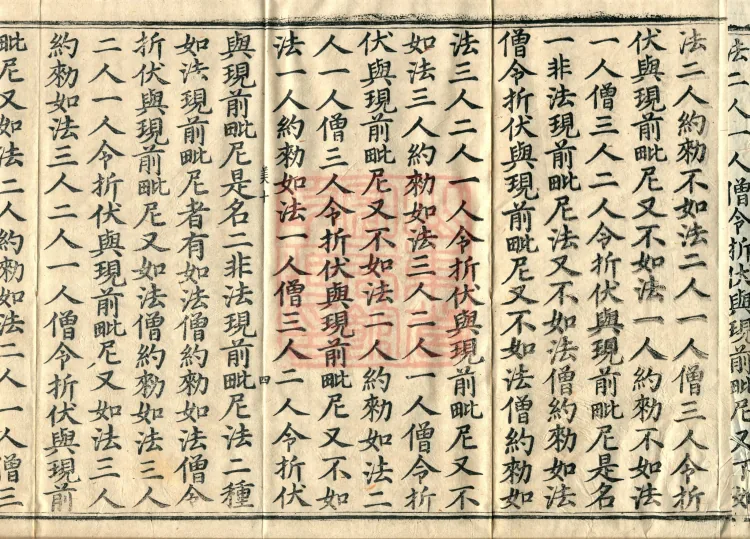 法二人一人僧令折伏與現前毗尼又不如
法二人約勑不如法二人一人僧三人令折
伏與現前毗尼又不如法一人約勑不如法
一人僧三人二人令折伏與現前毗尼是名
一非法現前毗尼法又不如法僧約勑如法
僧令折伏與現前毗尼又不如法僧約勑如
法三人二人一人令折伏與現前毗尼又不
如法三人約勑如法三人二人一人僧令折
伏與現前毗尼又不如法二人約勑如法二
人一人僧三人令折伏與現前毗尼又不如
法一人約勑如法一人僧三人二人令折伏
美十 四
與現前毗尼是名二非法現前毗尼法二種
如法現前毗尼者有如法僧約勑如法僧令
折伏與現前毗尼又如法僧約勑如法三人
二人一人令折伏與現前毗尼又如法三人
約勑如法三人二人一人僧令折伏與現前
毗尼又如法二人約勑如法二人一人僧三